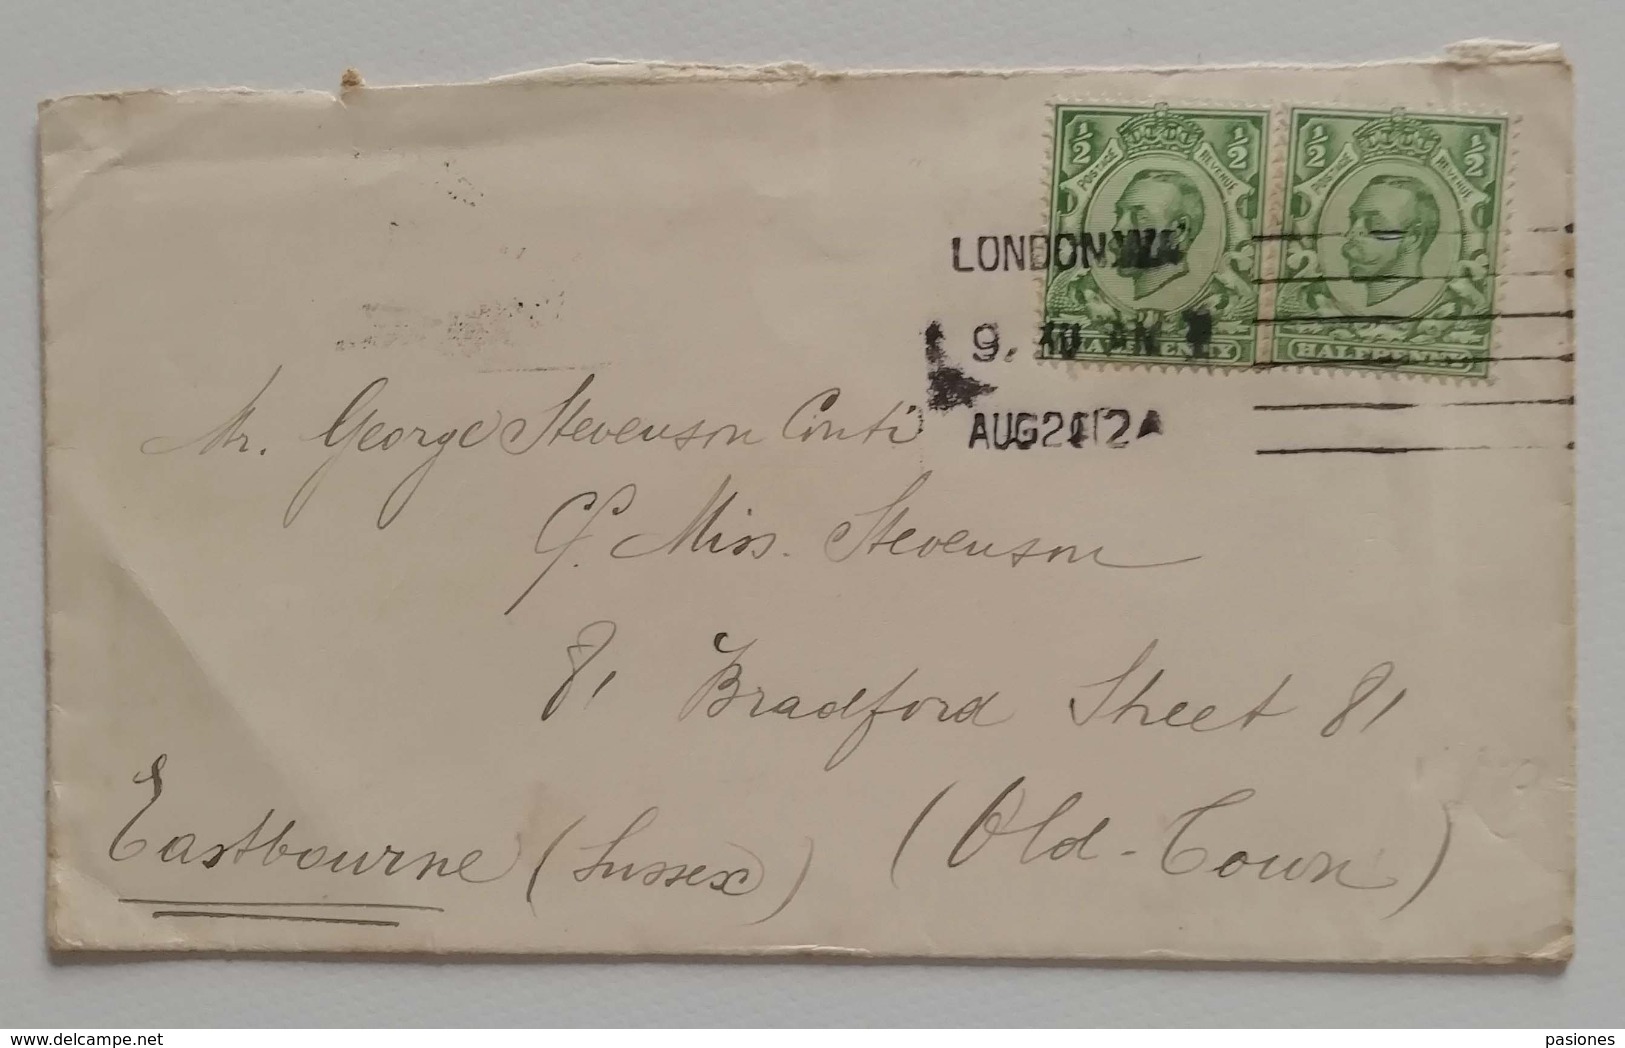 ½ ½
POSTAGE REVENUE
½ ½
POSTAGE REVENUE
HALFPENNY
HALFPENNY
LONDON
9. AM
AUG
Mr. George Stevenson Conti
c/ Miss. Stevenson
81 Bradford Street 81
(Old-Town)
Eastbourne (Sussex)
www.delcampe.net
pasiones